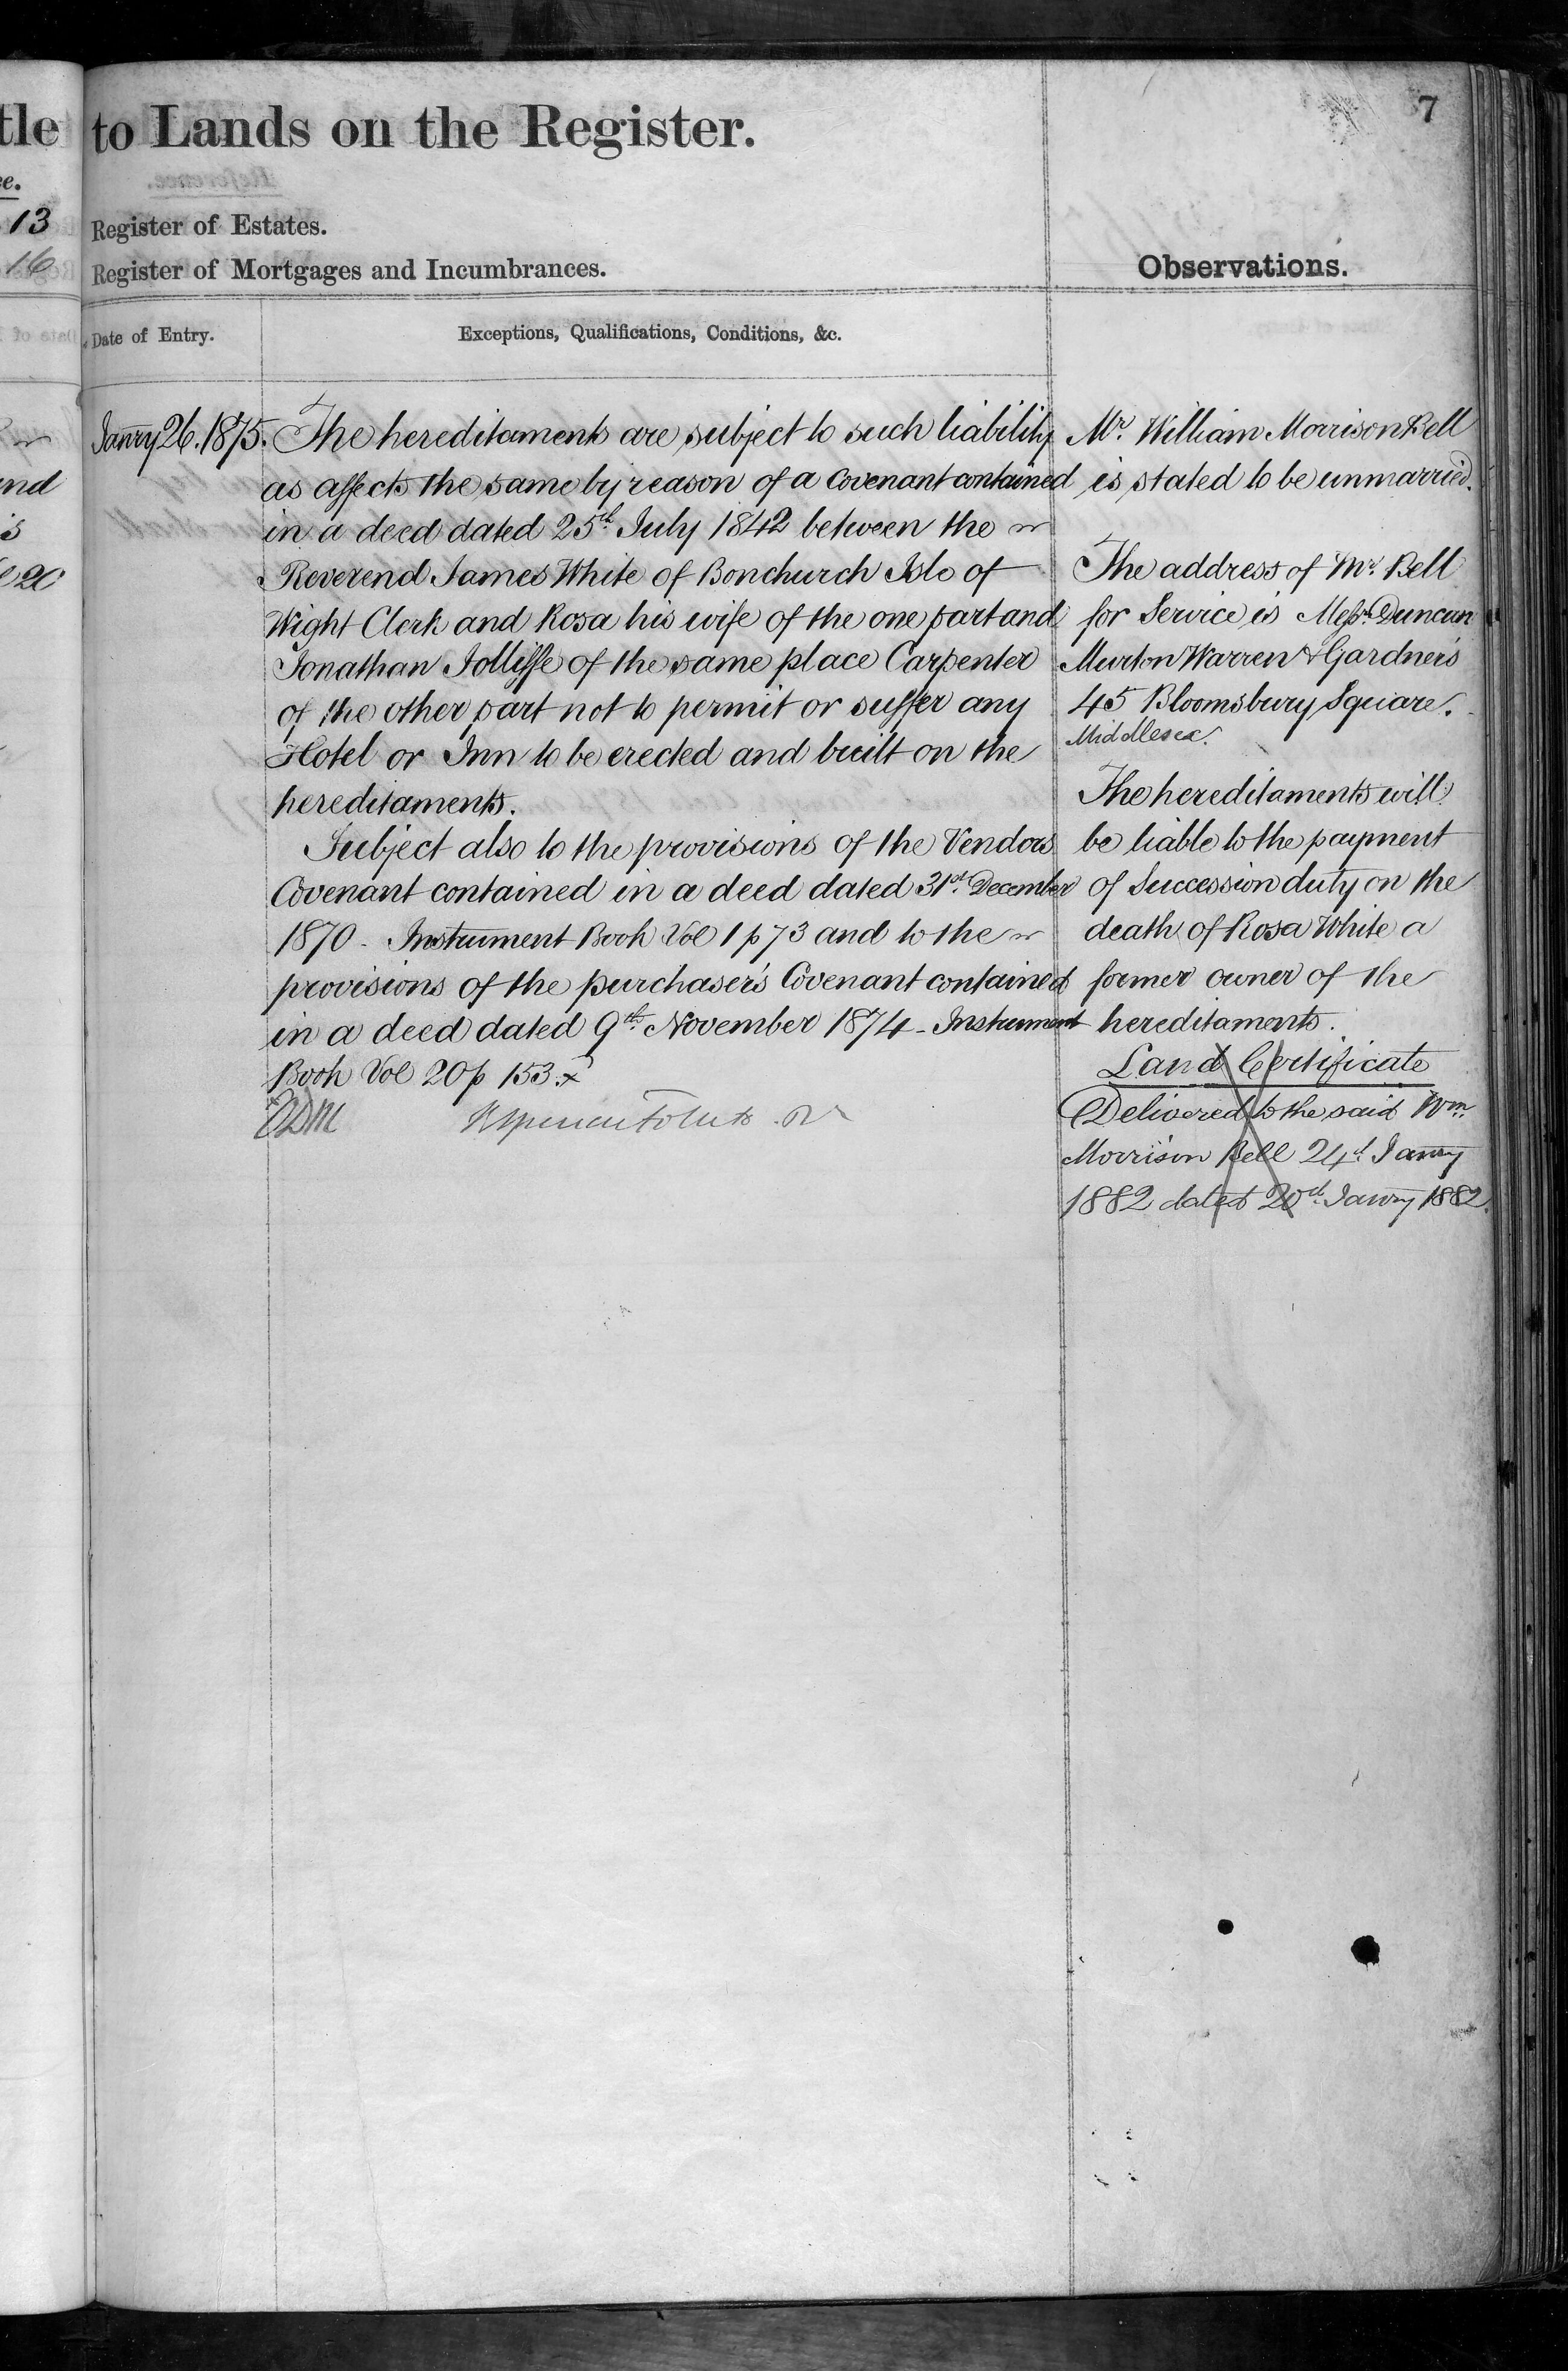 tle
to Lands on the Register.
7
13
Register of Estates.
16
Register of Mortgages and Incumbrances.
Observations.
Date of Entry.
Exceptions, Qualifications, Conditions, &c.
Janry 26. 1875.
The hereditaments are subject to such liability
as affects the same by reason of a Covenant contained
in a deed dated 25th July 1842 between the
Reverend James White of Bonchurch Isle of
Wight Clerk and Rosa his wife of the one part and
Jonathan Jolliffe of the same place Carpenter
of the other part not to permit or suffer any
Hotel or Inn to be erected and built on the
hereditaments.
Subject also to the provisions of the Vendors
Covenant contained in a deed dated 31st December
1870 - Instrument Book Vol 1 p 73 and to the
provisions of the purchaser's Covenant contained
in a deed dated 9th November 1874 - Instrument
Book Vol 20 p 153. x
Mr. William Morrison Bell
is stated to be unmarried.
The address of Mr. Bell
for Service is Messrs. Duncan
Murton Warren & Gardner's
45 Bloomsbury Square.
Middlesex.
The hereditaments will
be liable to the payment
of Succession duty on the
death of Rosa White a
former owner of the
hereditaments.
Land Certificate
Delivered to the said Wm.
Morrison Bell 24th Janry
1882 dated 20th Janry 1882.
nd
20